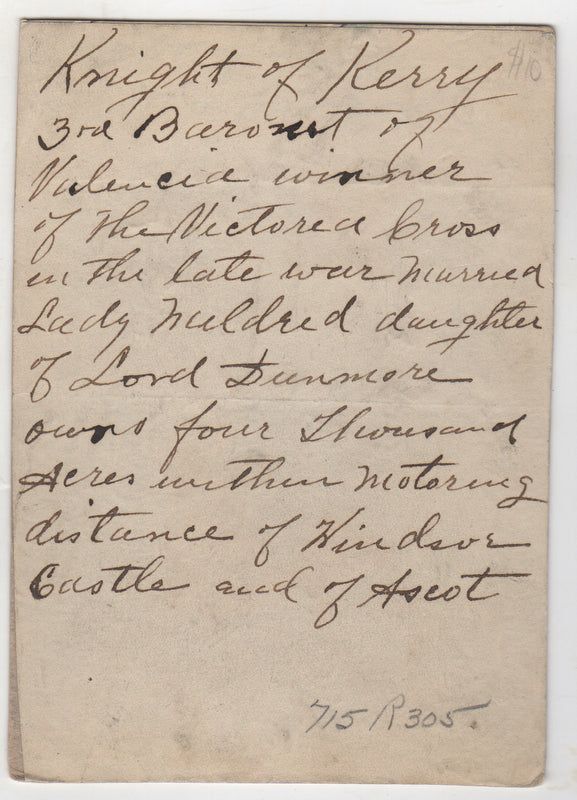 Knight of Kerry
$10
3rd Baronet of
Valencia winner
of the Victorea Cross
in the late war married
Lady Mildred daughter
of Lord Dunmore
owns four Thousand
Acres within motoring
distance of Windsor
Castle and of Ascot
715 R305.